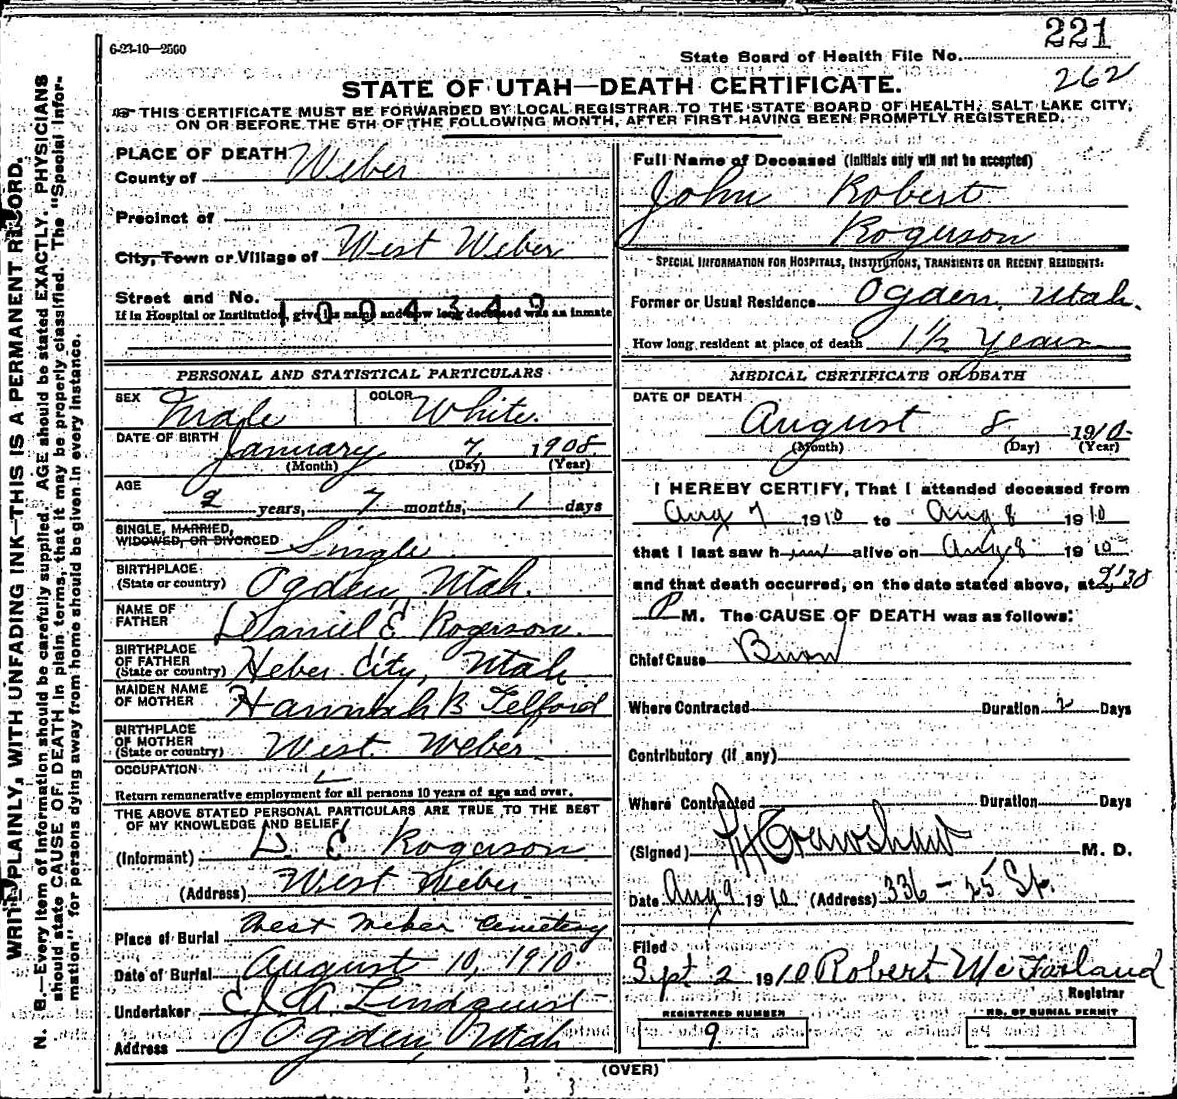 6-23-10—2500
221
State Board of Health File No.
262
STATE OF UTAH—DEATH CERTIFICATE.
THIS CERTIFICATE MUST BE FORWARDED BY LOCAL REGISTRAR TO THE STATE BOARD OF HEALTH, SALT LAKE CITY,
ON OR BEFORE THE 5TH OF THE FOLLOWING MONTH, AFTER FIRST HAVING BEEN PROMPTLY REGISTERED.
WRITE PLAINLY, WITH UNFADING INK—THIS IS A PERMANENT RECORD.
N. B.—Every item of information should be carefully supplied. AGE should be stated EXACTLY. PHYSICIANS
should state CAUSE OF DEATH in plain terms, that it may be properly classified. The "Special Infor-
mation" for persons dying away from home should be given in every instance.
PLACE OF DEATH
County of Weber
Precinct of
City, Town or Village of West Weber
Street and No.
1004349
If in Hospital or Institution, give its name and how long deceased was an inmate
PERSONAL AND STATISTICAL PARTICULARS
SEX Male COLOR White.
DATE OF BIRTH January 7, 1908.
(Month) (Day) (Year)
AGE
2 years, 7 months, 1 days
SINGLE, MARRIED,
WIDOWED, OR DIVORCED Single
BIRTHPLACE
(State or country) Ogden, Utah.
NAME OF
FATHER Daniel E Rogerson.
BIRTHPLACE
OF FATHER
(State or country) Heber City, Utah
MAIDEN NAME
OF MOTHER Hannah B. Telford
BIRTHPLACE
OF MOTHER
(State or country) West Weber
OCCUPATION
Return remunerative employment for all persons 10 years of age and over.
THE ABOVE STATED PERSONAL PARTICULARS ARE TRUE TO THE BEST
OF MY KNOWLEDGE AND BELIEF
(Informant) D. E Rogerson
(Address) West Weber
Place of Burial West Weber Cemetery
Date of Burial August 10, 1910.
Undertaker Lindquist
Address Ogden, Utah
Full Name of Deceased (Initials only will not be accepted)
John Robert
Rogerson
SPECIAL INFORMATION FOR HOSPITALS, INSTITUTIONS, TRANSIENTS OR RECENT RESIDENTS:
Former or Usual Residence Ogden, Utah.
How long resident at place of death 1 1/2 Years
MEDICAL CERTIFICATE OF DEATH
DATE OF DEATH
August 8 1910.
(Month) (Day) (Year)
I HEREBY CERTIFY, That I attended deceased from
Aug 7 1910 to Aug 8 1910
that I last saw him alive on Aug 8 1910
and that death occurred, on the date stated above, at 2:30
P M. The CAUSE OF DEATH was as follows:
Chief Cause Burn
Where Contracted Duration 2 Days
Contributory (if any)
Where Contracted Duration Days
(Signed) Crawshaw M. D.
Date Aug 9 1910 (Address) 336 - 25 St.
Filed
Sept 2 1910 Robert McFarland
Registrar
REGISTERED NUMBER
9
NO. OF BURIAL PERMIT
(OVER)